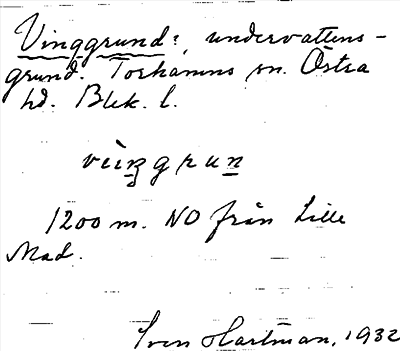 Vinggrund: undervattens-
grund. Torhamns sn. Östra
hd. Blek. l.
vìŋgrun
1200 m. NO från Lille
Mad.
Sven Hartman, 1932